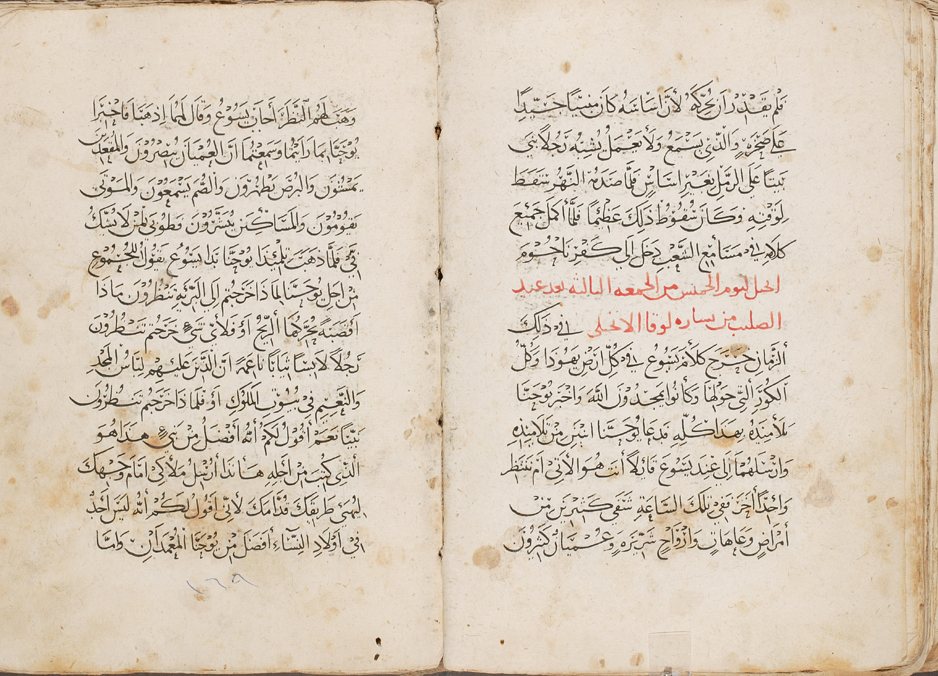 فلم يقدر ان يحركه لان اساسه كان مبنيا جيدا
على صخره والذي يستمع ولا يعمل يشبه رجلا بنى
بيتا على الرمل بغير اساس فلما صدمه النهر سقط
لوقته وكان سقوط ذلك عظيما فلما اكمل جميع
كلامه في مسامع الشعب دخل الى كفرناحوم
انجيل ليوم الخميس من الجمعه الثالثه بعد عيد
الصليب من بشاره لوقا الانجيلي في ذلك
الزمان خرج كلام يسوع في كل ارض يهودا وكل
الكور التي حولها وكانوا يمجدون الله واخبر يوحنا
تلاميذه بهذا كله فدعا يوحنا اثنين من تلاميذه
وارسلهما الى عند يسوع قايلا أنت هو الأتي ام ننتظر
واحدا اخر ففي تلك الساعة شفى كثيرين من
أمراض وعاهات وارواح شريره وعميان كثيرون
وهب لهم النظر أجاب يسوع وقال لهما اذهبا فاخبرا
يوحنا بما رايتما وسمعتما ان العميان يبصرون والمقعدين
يمشون والبرص يطهرون والصم يسمعون والموتى
يقومون والمساكين يبشرون وطوبى لمن لا يشك
في فلما ذهب تلميذا يوحنا بدا يسوع يقول للجموع
من اجل يوحنا لماذا خرجتم الى البرية تنظرون ماذا
أقصبة تحركها الريح او فلأي شيء خرجتم تنظرون
رجلا لابسا ثيابا ناعمة ان الذين عليهم لباس المجد
والنعيم في بيوت الملوك او فلماذا خرجتم تنظرون
نبيا نعم أقول لكم أنه أفضل من نبي هذا هو
الذي كتب من اجله هأنذا أرسل ملاكي امام وجهك
ليهيئ طريقك قدامك لأني اقول لكم أنه ليس أحد
في أولاد النساء أفضل من يوحنا المعمدان واما
١٦٩